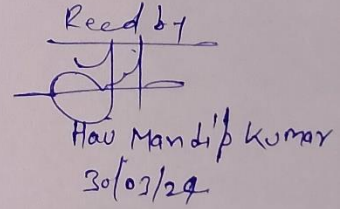 Recd by
Hav Mandip Kumar
30/03/24